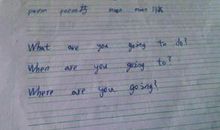 poem poem
What are you going to do?
When are you going to?
Where are you going?